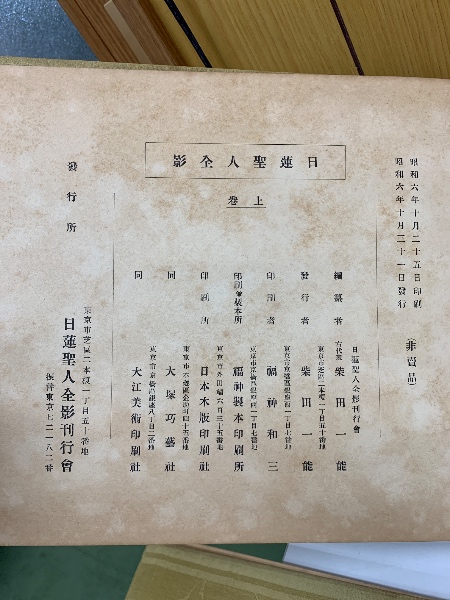 日蓮聖人全影
上巻
昭和六年十月二十五日印刷
昭和六年十月三十一日發行
非賣品
編纂者
日蓮聖人全影刊行會
右代表 柴田一能
發行者
東京市芝區二本榎一丁目五十番地
柴田一能
印刷者
福神和三
印刷兼製本所
福神製本印刷所
印刷所
日本木版印刷社
同
大塚巧藝社
同
大江美術印刷社
發行所
東京市芝區二本榎一丁目五十番地
日蓮聖人全影刊行會
振替東京七二一八二番